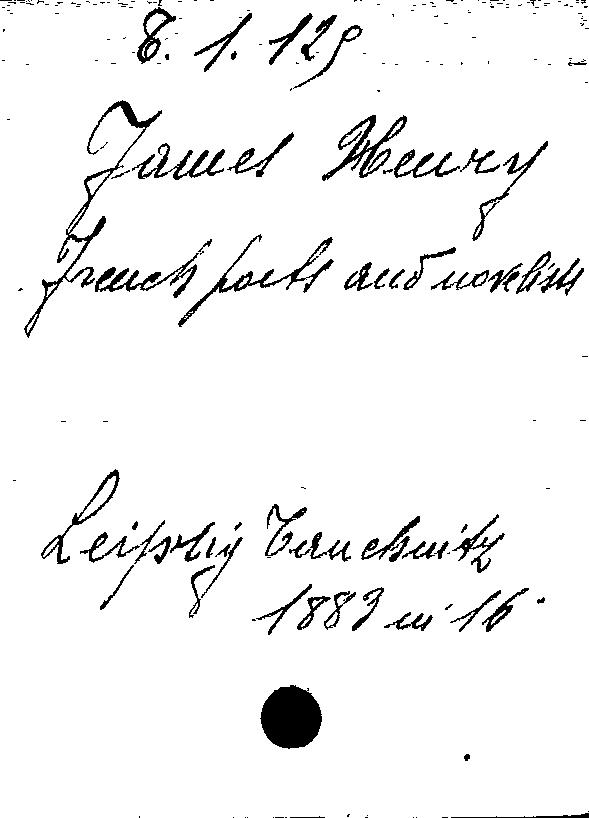 T. 1. 129
James Henry
French poets and novelists
Leipzig Tauchnitz
1883 in 16°